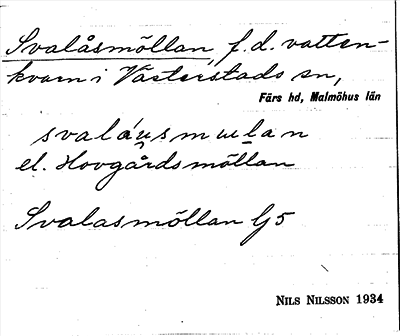 Svalåsmöllan, f.d. vatten-
kvarn i Västerstads sn,
Färs hd, Malmöhus län
svaláu̯smu̯lan
el. Hovgårdsmöllan
Svalasmöllan G5
NILS NILSSON 1934